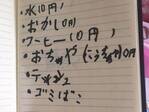 ・水(0円)
・おかし(0円)
・コーヒー(0円)
・おちゃや(こうちゃ)0円
・ティッシュ
・ゴミばこ